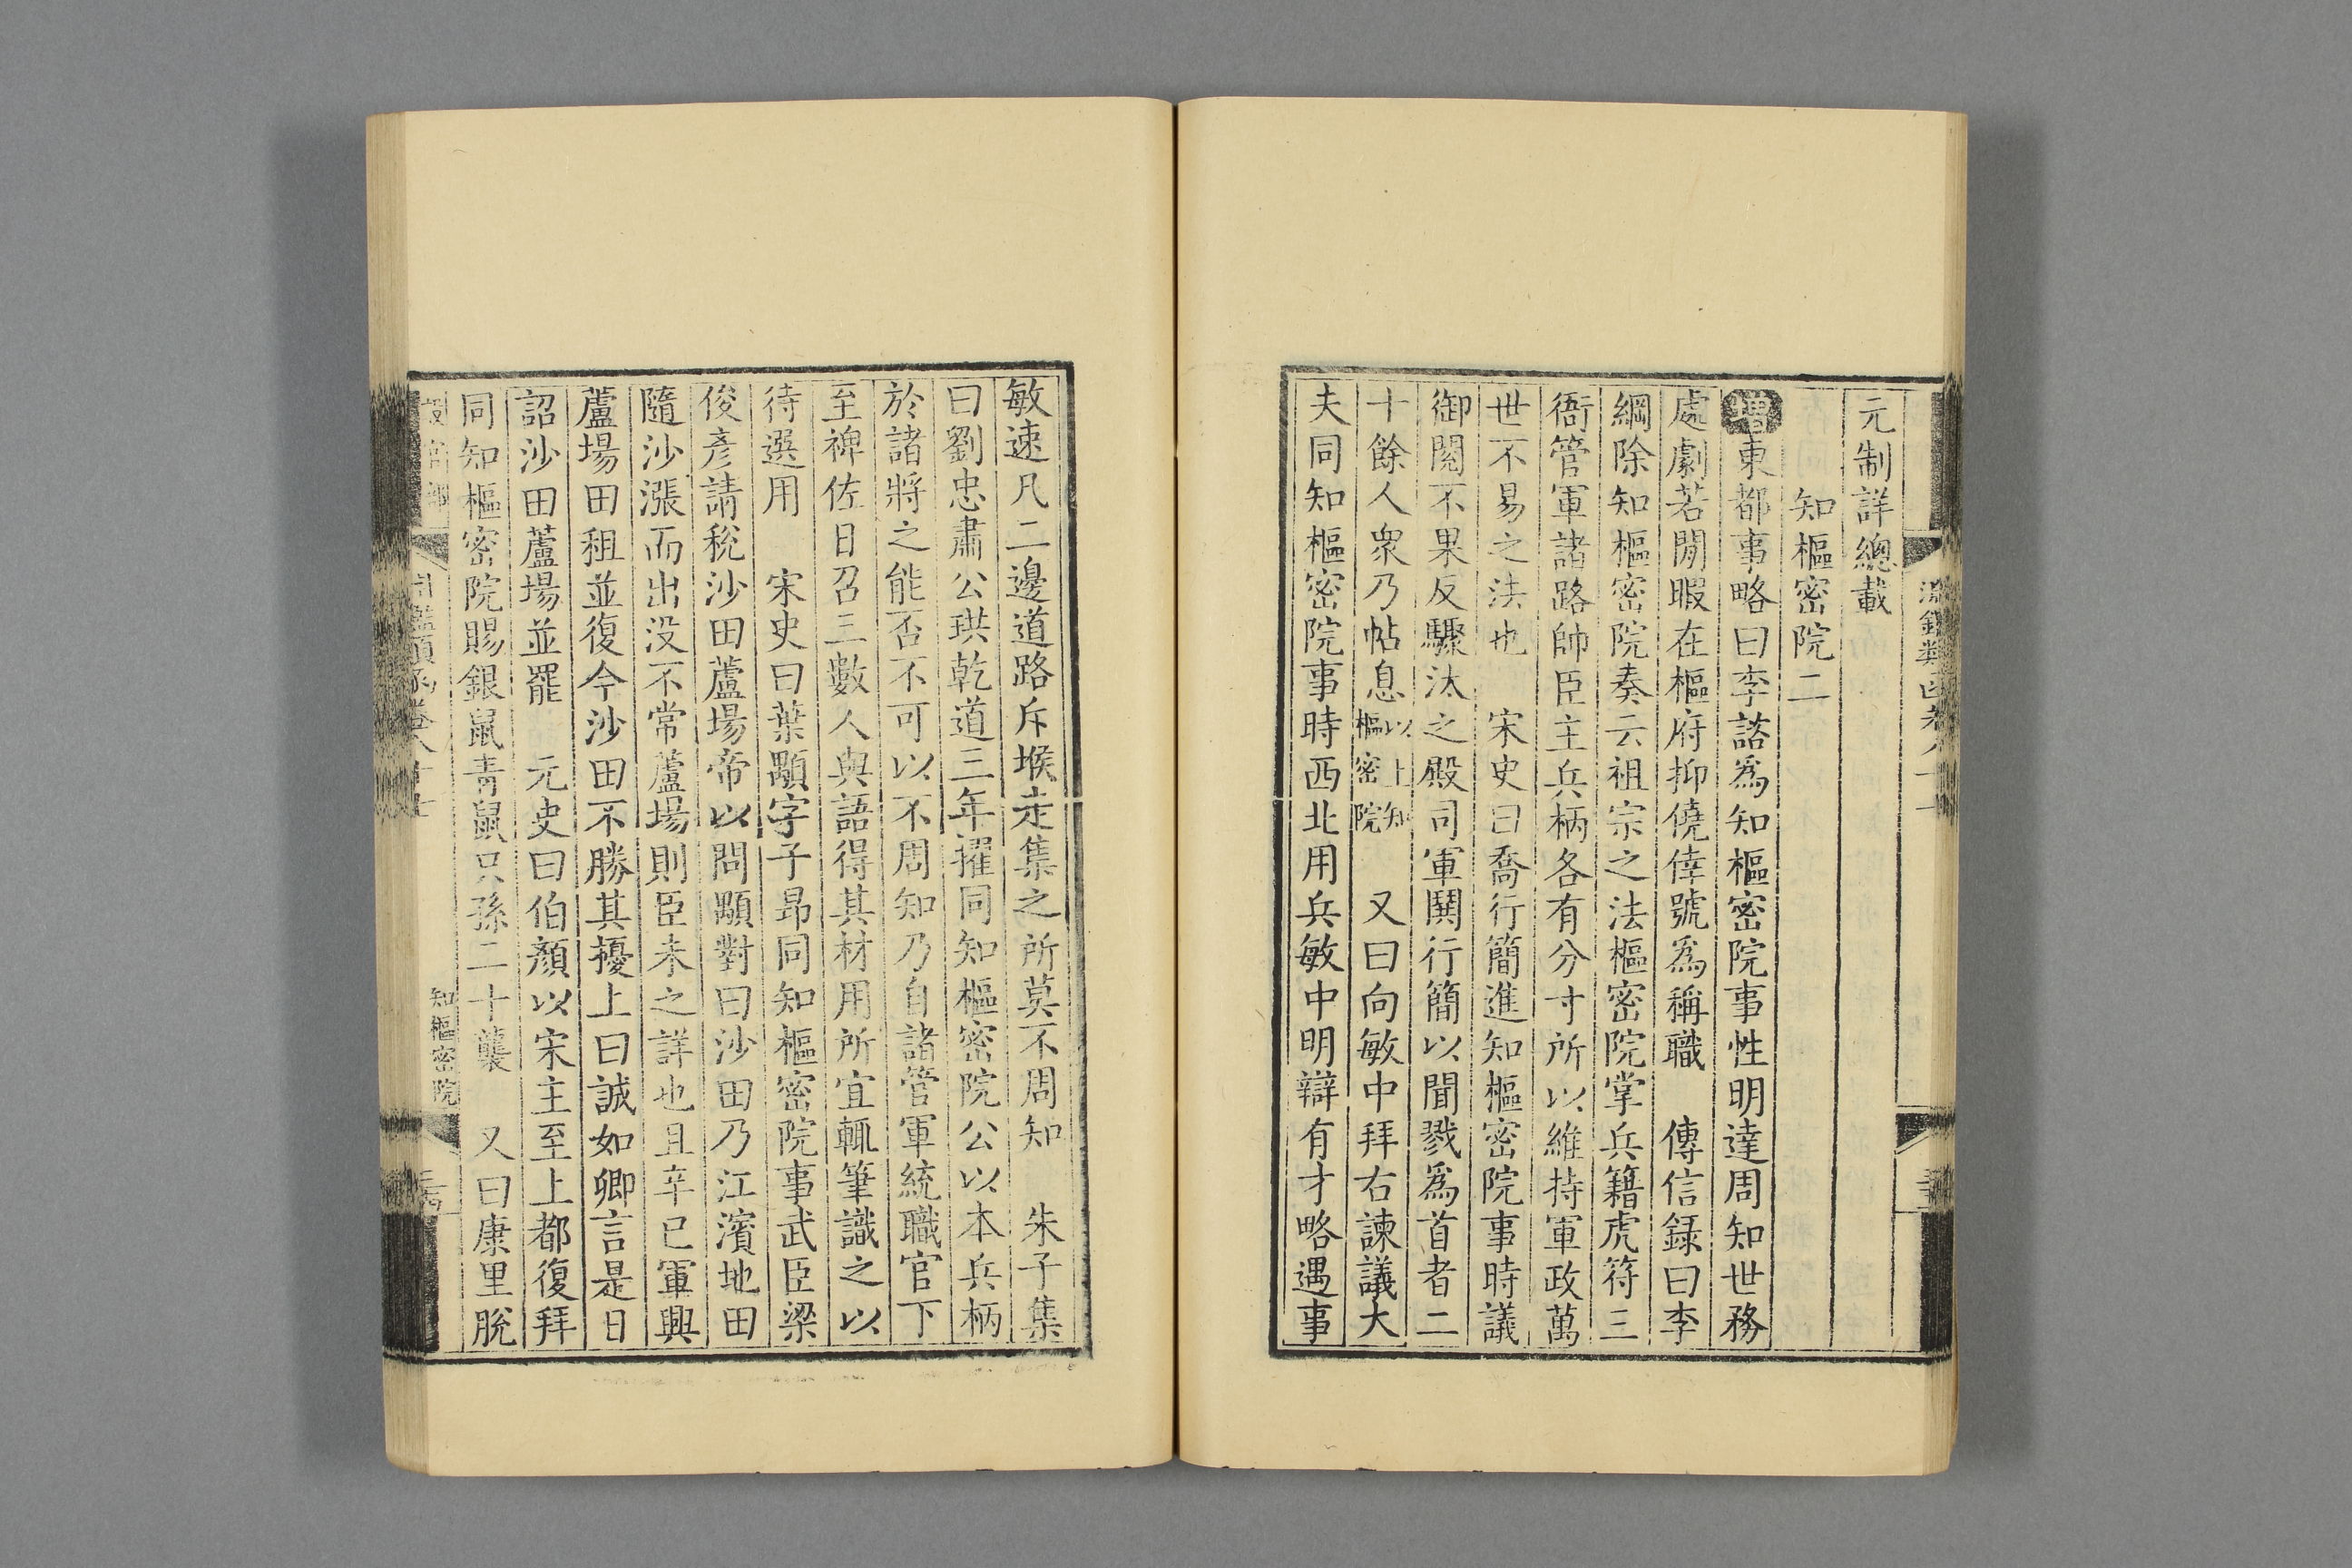 元制詳總載
知樞密院二
增東都事略曰李諮爲知樞密院事性明達周知世務
處劇若閒暇在樞府抑僥倖號爲稱職　傳信録曰李
綱除知樞密院奏云祖宗之法樞密院掌兵籍虎符三
衙管軍諸路帥臣主兵柄各有分寸所以維持軍政萬
世不易之法也　宋史曰喬行簡進知樞密院事時議
御閱不果反驟汰之殿司軍鬨行簡以聞戮爲首者二
十餘人衆乃帖息以上知樞密院　又曰向敏中拜右諫議大
夫同知樞密院事時西北用兵敏中明辯有才略遇事
敏速凡二邊道路斥堠走集之所莫不周知　朱子集
曰劉忠肅公珙乾道三年擢同知樞密院公以本兵柄
於諸將之能否不可以不周知乃自諸管軍統職官下
至禆佐日召三數人與語得其材用所宜輒筆識之以
待選用　宋史曰葉顒字子昻同知樞密院事武臣梁
俊彥請稅沙田蘆場帝以問顒對曰沙田乃江濱地田
隨沙漲而出没不常蘆場則臣未之詳也且辛已軍興
蘆場田租並復今沙田不勝其擾上曰誠如卿言是日
詔沙田蘆場並罷　元史曰伯顏以宋主至上都復拜
同知樞密院賜銀鼠青鼠只孫二十襲　又曰康里脫
知樞密院